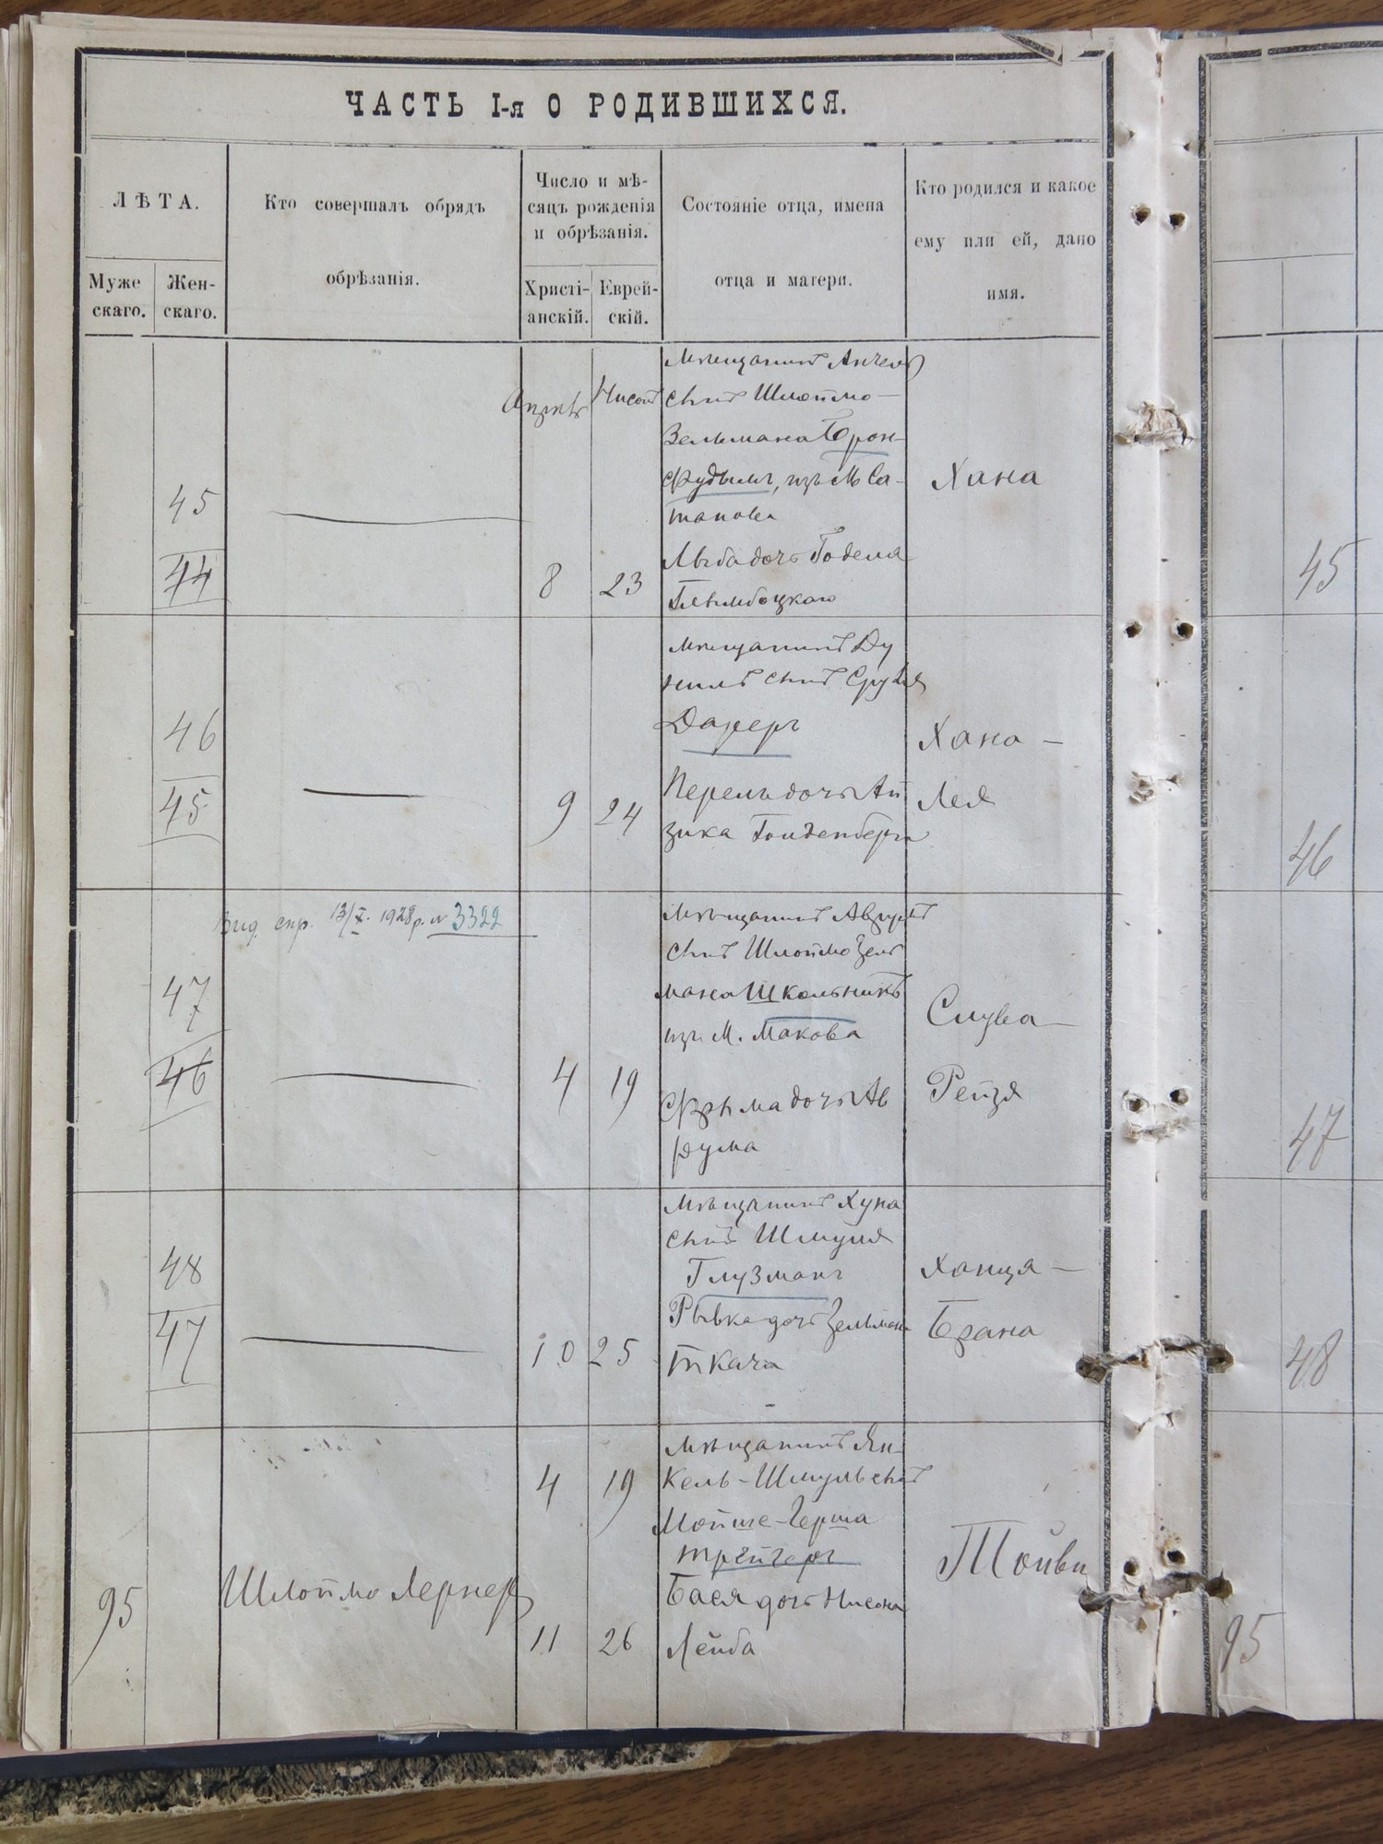 ЧАСТЬ I-я О РОДИВШИХСЯ.
ЛѢТА.
Муже
скаго.
Жен-
скаго.
Кто совершалъ обрядъ
обрѣзанія.
Число и мѣ-
сяцъ рожденія
и обрѣзанія.
Христі-
анскій.
Еврей-
скій.
Состояніе отца, имена
отца и матери.
Кто родился и какое
ему или ей, дано
имя.
45
44
Апрѣль
8
Нисонъ
23
Мѣщанинъ
сынъ Шлоймо-
Зельмана Брон-
фудымъ, изъ М Са-
танова
Лыба дочь Годеля
Хана
45
46
45
9
24
Мѣщанинъ Ду
нилъ сынъ Сруля
Дахеръ
Перель дочь Ай
зика Гольденберга
Хана-
Лея
46
Вид. спр. 13/X. 1928 р. № 3322
47
46
4
19
Мѣщанинъ
сынъ Шлоймо Зель
мана Школьникъ
изъ М. Макова
Фрыма дочь Ав
рума
Слува-
Рейзя
47
48
47
10
25
Мѣщанинъ Хуна
сынъ Шмуля
Глузманъ
Рывка дочь Зельмана
Ткача
Ханця-
Брана
48
95
Шлоймо Лернеръ
4
19
11
26
Мѣщанинъ Ян-
кель-Шмуль сынъ
Мойше-Герша
Трейгеръ
Бася дочь Нисона
Лейба
Тойви
95